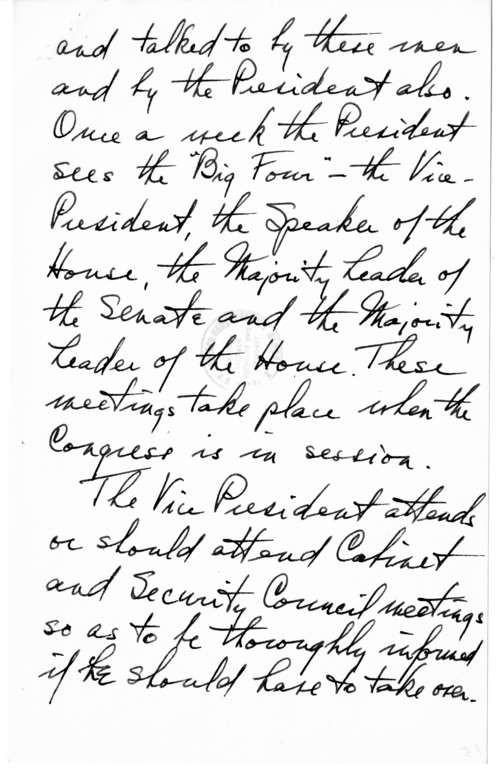 and talked to by these men
and by the President also.
Once a week the President
sees the "Big Four" – the Vice-
President, the Speaker of the
House, the Majority Leader of
the Senate and the Majority
Leader of the House. These
meetings take place when the
Congress is in session.
The Vice President attends
or should attend Cabinet
and Security Council meetings
so as to be thoroughly informed
if he should have to take over.